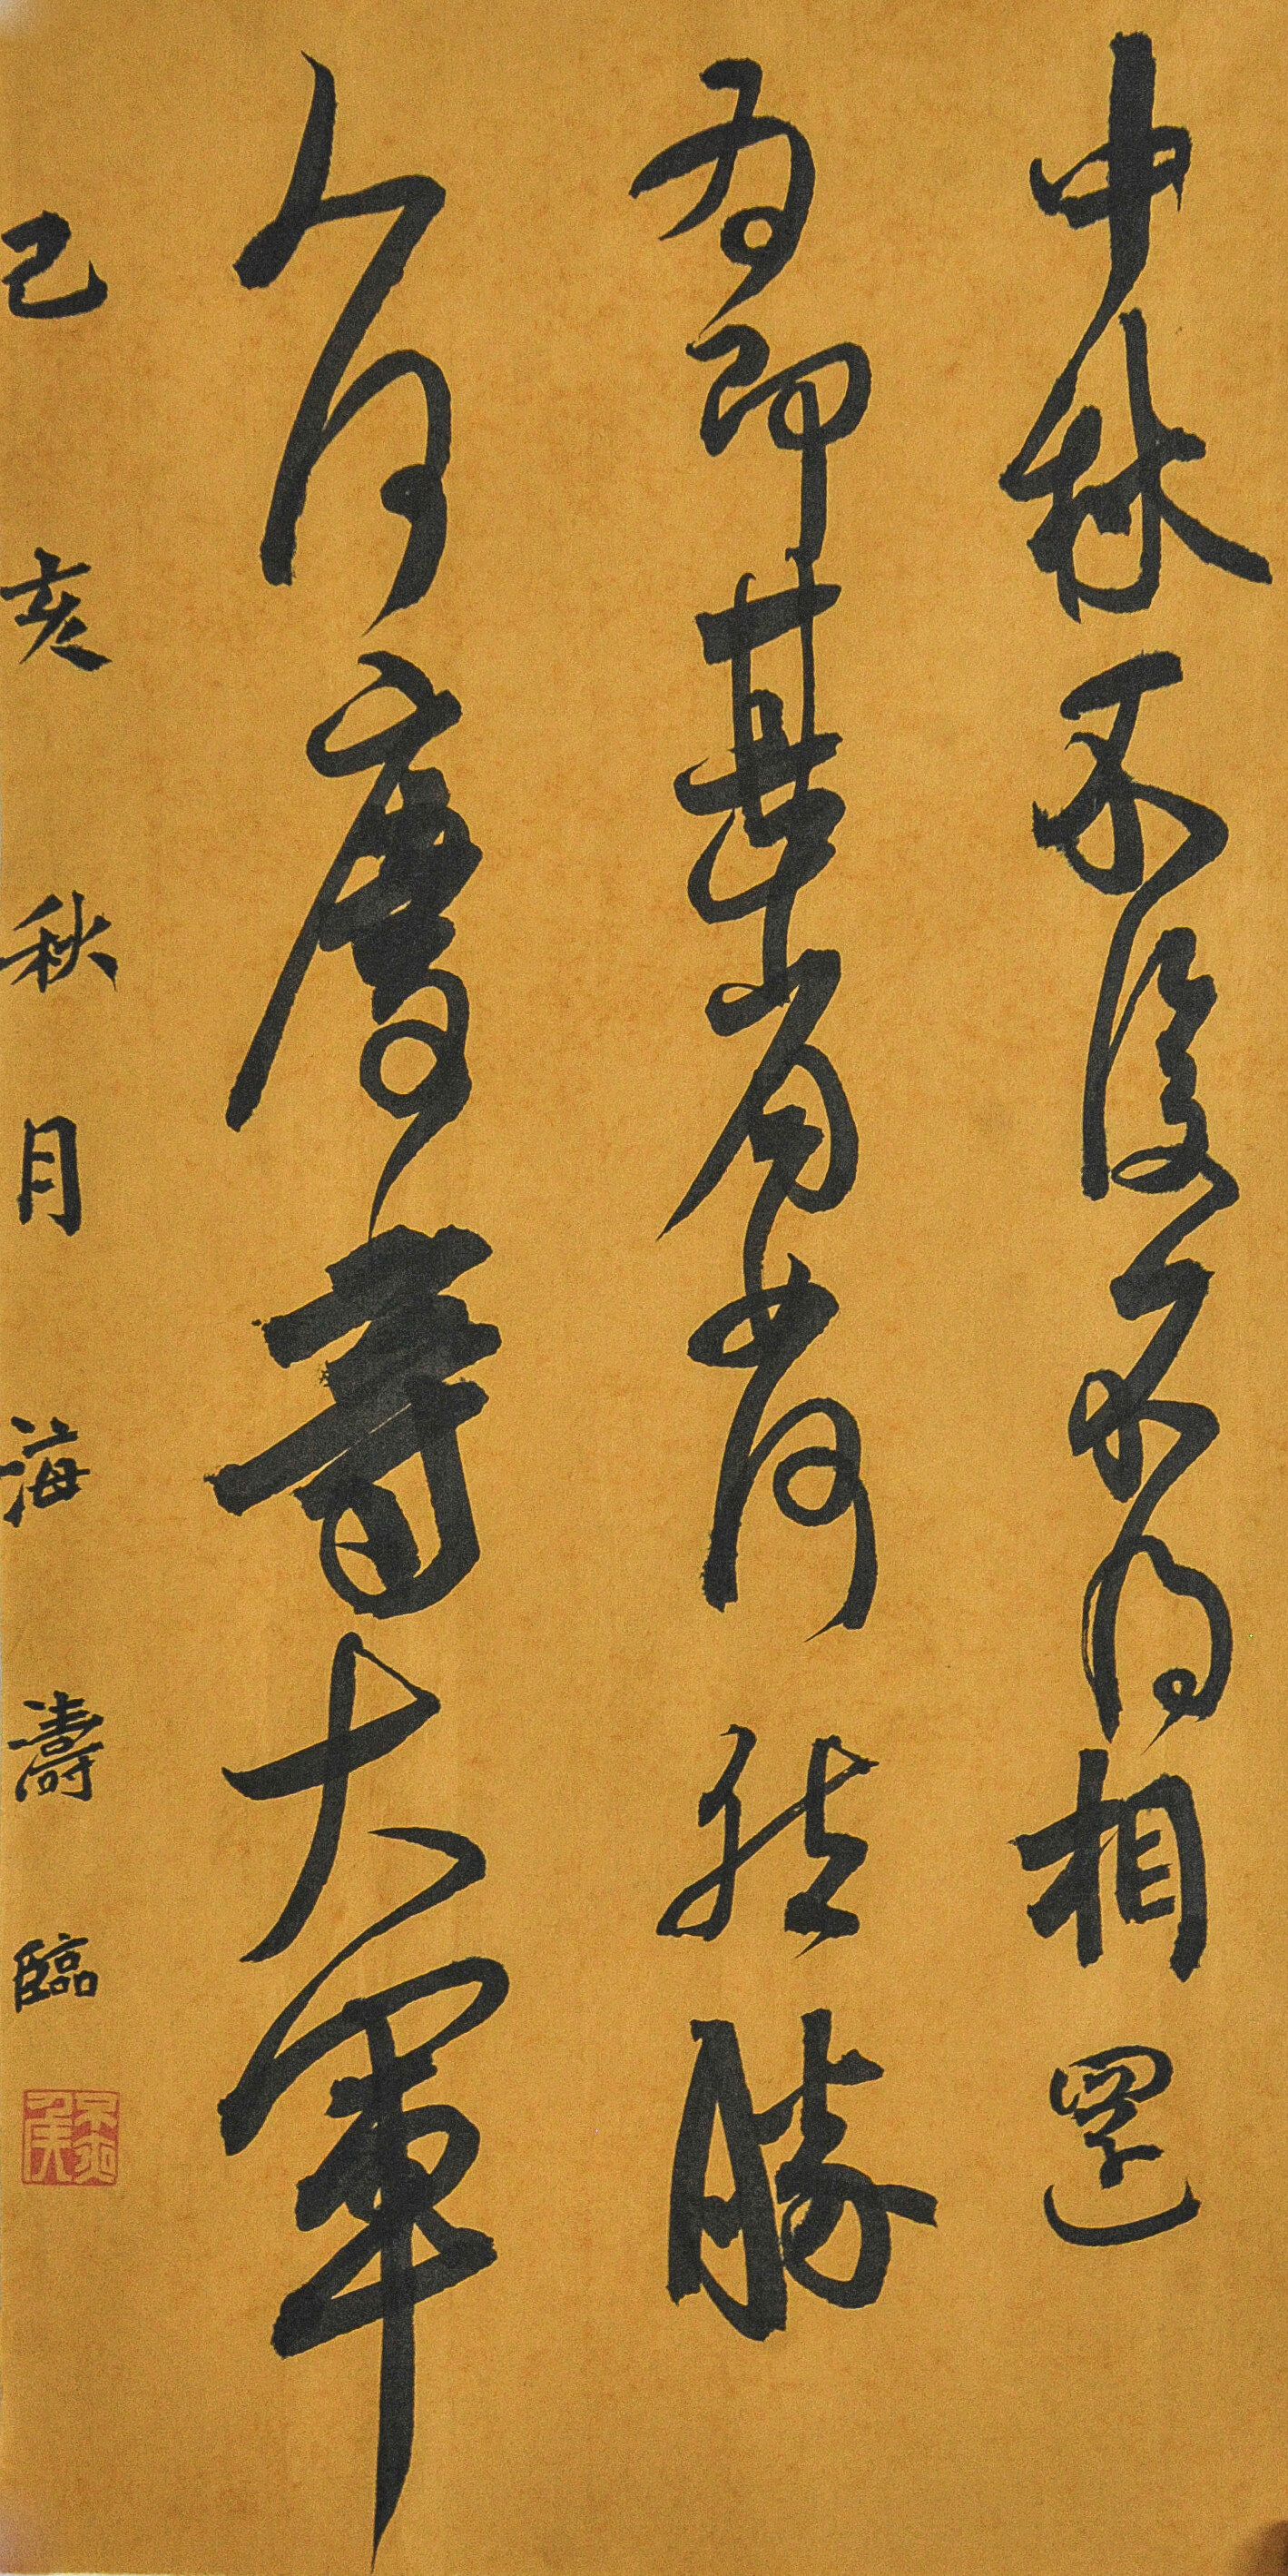 中秋不復不得相還
為即甚省如何然勝
人何慶等大軍
己亥秋月海濤臨